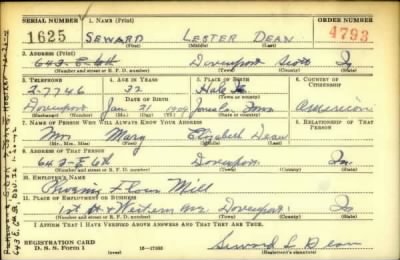 SERIAL NUMBER
1. NAME (Print)
ORDER NUMBER
1625
SEWARD LESTER DEAN
4793
(First) (Middle) (Last)
2. ADDRESS (Print)
643-E-6th Davenport Scott Ia
(Number and street or R. F. D. number) (Town) (County) (State)
3. TELEPHONE
4. AGE IN YEARS
5. PLACE OF BIRTH
6. COUNTRY OF CITIZENSHIP
2-7746
32
DATE OF BIRTH
Davenport Jan 31 1909 Iowa
(Exchange) (Number) (Mo.) (Day) (Yr.) (Town or county) (State or country)
7. NAME OF PERSON WHO WILL ALWAYS KNOW YOUR ADDRESS
RELATIONSHIP OF THAT PERSON
Mrs Mary Elizabeth Dean
(Mr., Mrs., Miss) (First) (Middle) (Last)
9. ADDRESS OF THAT PERSON
643-E 6th Davenport Ia.
(Number and street or R. F. D. number) (Town) (County) (State)
10. EMPLOYER'S NAME
Phoenix Flour Mill
11. PLACE OF EMPLOYMENT OR BUSINESS
1st St + Western Ave Davenport Ia
(Number and street or R. F. D. number) (Town) (County) (State)
I AFFIRM THAT I HAVE VERIFIED ABOVE ANSWERS AND THAT THEY ARE TRUE.
REGISTRATION CARD
D. S. S. Form 1
(over) 16-17105
Seward L Dean
(Registrant's signature)